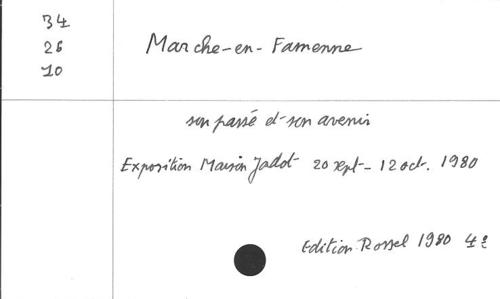 34
26
10
Marche-en-Famenne
son passé et son avenir
Exposition Maison Jadot 20 sept - 12 oct. 1980
Edition Rossel 1980 4º